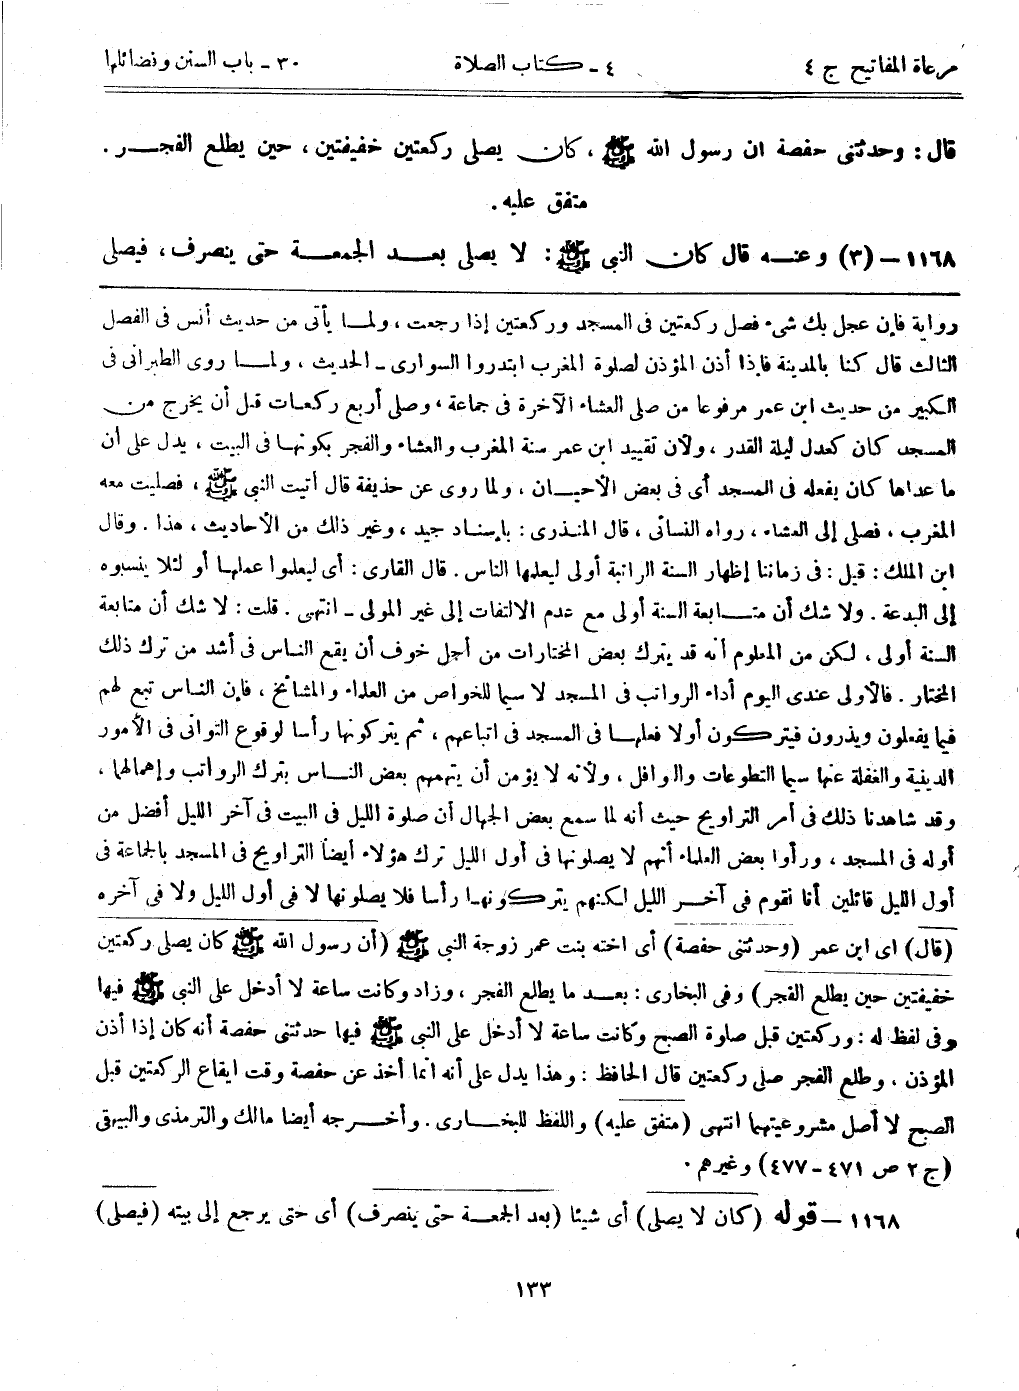 مرعاة المفاتيح ج ٤ ٤ - كتاب الصلاة ٣٠ - باب السنن وفضائلها
قال: وحدثتنى حفصة ان رسول الله ﷺ، كان يصلى ركعتين خفيفتين، حين يطلع الفجر.
متفق عليه.
١١٦٨ - (٣) وعنه قال كان النبى ﷺ: لا يصلى بعد الجمعة حتى ينصرف، فيصلى
رواية فإن عجل بك شىء فصل ركعتين فى المسجد وركعتين إذا رجعت، ولما يأتى من حديث أنس فى الفصل
الثالث قال كنا بالمدينة فإذا أذن المؤذن لصلوة المغرب ابتدروا السوارى - الحديث، ولما روى الطبرانى فى
الكبير من حديث ابن عمر مرفوعا من صلى العشاء الآخرة فى جماعة، وصلى أربع ركعات قبل أن يخرج من
المسجد كان كعدل ليلة القدر، ولأن تقييد ابن عمر سنة المغرب والعشاء والفجر بكونها فى البيت، يدل على أن
ما عداها كان يفعله فى المسجد أى فى بعض الأحيان، ولما روى عن حذيفة قال أتيت النبى ﷺ، فصليت معه
المغرب، فصلى إلى العشاء، رواه النسائى، قال المنذرى: بإسناد جيد، وغير ذلك من الأحاديث، هذا. وقال
ابن الملك: قيل: فى زماننا إظهار السنة الراتبة أولى ليعلمها الناس. قال القارى: أى ليعلموا عملها أو لئلا ينسبوه
إلى البدعة. ولا شك أن متابعة السنة أولى مع عدم الالتفات إلى غير المولى - انتهى. قلت: لا شك أن متابعة
السنة أولى، لكن من المعلوم أنه قد يترك بعض المختارات من أجل خوف أن يقع الناس فى أشد من ترك ذلك
المختار. فالأولى عندى اليوم أداء الرواتب فى المسجد لا سيما للخواص من العلماء والمشائخ، فإن الناس تبع لهم
فيما يفعلون ويذرون فيتركون أولا فعلها فى المسجد فى اتباعهم، ثم يتركونها رأسا لوقوع التوانى فى الأمور
الدينية والغفلة عنها سيما التطوعات والنوافل، ولأنه لا يؤمن أن يتهمهم بعض الناس بترك الرواتب وإهمالها،
وقد شاهدنا ذلك فى أمر التراويح حيث أنه لما سمع بعض الجهال أن صلوة الليل فى البيت فى آخر الليل أفضل من
أوله فى المسجد، ورأوا بعض العلماء أنهم لا يصلونها فى أول الليل ترك هؤلاء أيضا التراويح فى المسجد بالجماعة فى
أول الليل قائلين أنا نقوم فى آخر الليل لكنهم يتركونها رأسا فلا يصلونها لا فى أول الليل ولا فى آخره
(قال) اى ابن عمر (وحدثتنى حفصة) أى اخته بنت عمر زوجة النبى ﷺ (أن رسول الله ﷺ كان يصلى ركعتين
خفيفتين حين يطلع الفجر) وفى البخارى: بعد ما يطلع الفجر، وزاد وكانت ساعة لا أدخل على النبى ﷺ فيها
وفى لفظ له: وركعتين قبل صلوة الصبح وكانت ساعة لا أدخل على النبى ﷺ فيها حدثتنى حفصة أنه كان إذا أذن
المؤذن، وطلع الفجر صلى ركعتين قال الحافظ: وهذا يدل على أنه انما أخذ عن حفصة وقت ايقاع الركعتين قبل
الصبح لا أصل مشروعيتهما انتهى (متفق عليه) واللفظ للبخارى. وأخرجه أيضا مالك والترمذى والبيهقى
(ج ٢ ص ٤٧١ - ٤٧٧) وغيرهم.
١١٦٨ - قوله (كان لا يصلى) أى شيئا (بعد الجمعة حتى ينصرف) أى حتى يرجع إلى بيته (فيصلى)
١٣٣